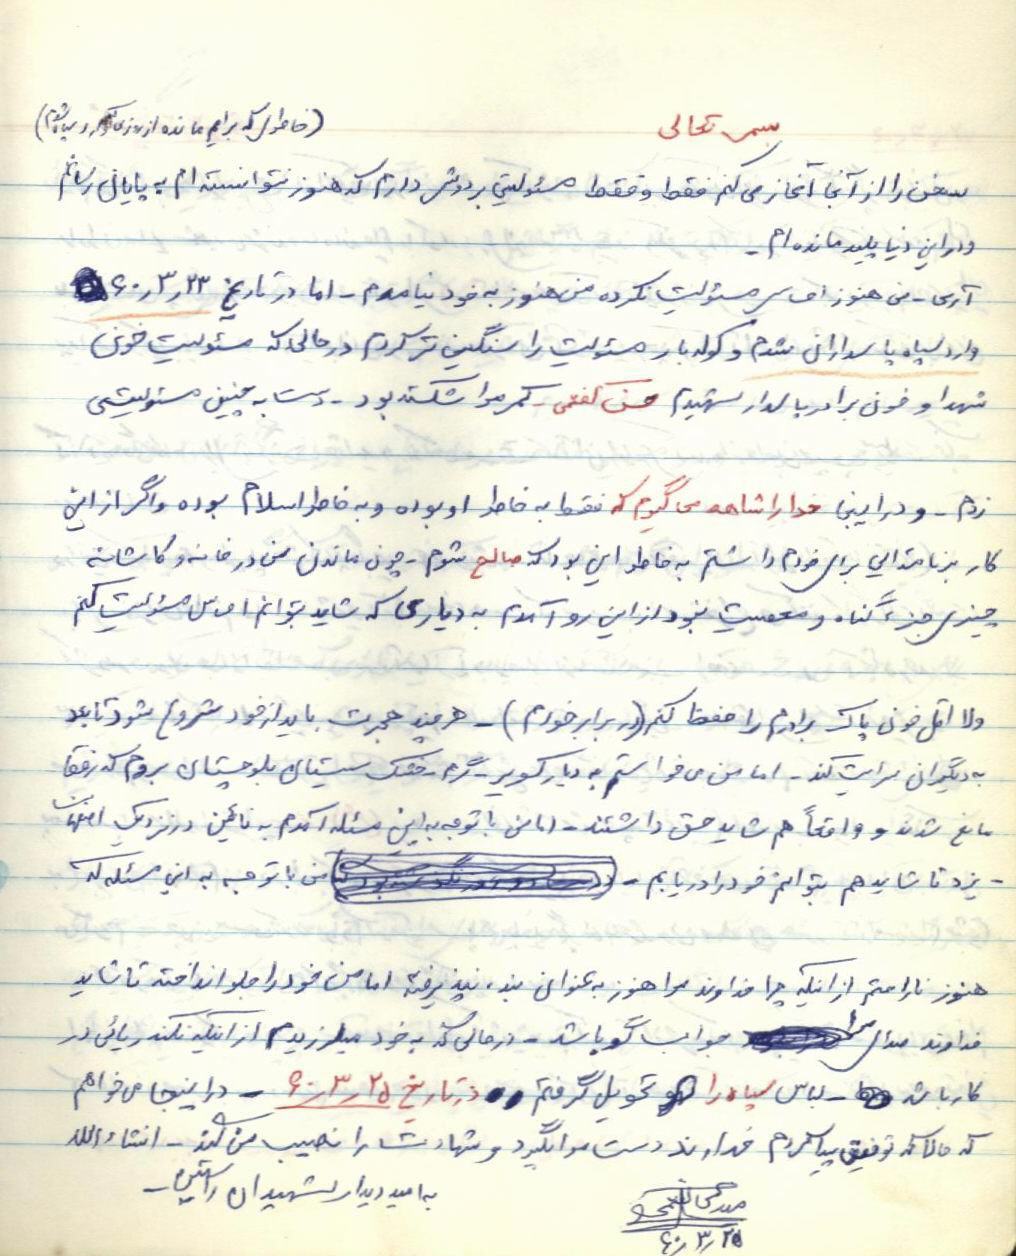 بسمه تعالی
(خاطراتی که برایم مانده از روزی که وارد سپاه شدم)
سخن را از آنجا آغاز می کنم فقط و فقط مسئولیتی بر دوش دارم که هنوز نتوانسته ام به پایان رسانم
و در این دنیا پلید مانده ام -
آری - من هنوز احساس مسئولیت نکرده من هنوز به خود نیامدم - اما در تاریخ ۶۰٫۳٫۲۳
وارد سپاه پاسداران شدم و کوله بار مسئولیت را سنگین تر کردم در حالی که مسئولیت خون
شهدا و خون برادر پاسدار شهیدم حسن کفعمی - کمر مرا شکسته بود - دست به چنین مسئولیتی
زدم - و در اینجا خدا را شاهد می گیرم که فقط به خاطر او بوده و به خاطر اسلام بوده و اگر از این
کار برنامه‌ای برای خودم داشتم به خاطر این بود که صالح شوم - چون ماندن من در خانه و کاشانه
چیزی جزء گناه و معصیت نبود از این رو آمدم به دیاری که شاید بتوانم احساس مسئولیت کنم
و لااقل خون پاک برادرم را حفظ کنم (در برابر خودم) - هر چند هجرت باید از خود شروع شود تا بعد
به دیگران سرایت کند - اما من می خواستم به دیار کویر - گرم - خشک سیستان بلوچستان بروم که رفقا
مانع شدند و واقعاً هم شاید حق داشتند - اما من با توجه به این مسئله آمدم به نائین در نزدیک اصفهان
- یزد تا شاید هم بتوانم خود را دریابم - من با توجه به این مسئله که
هنوز ناراحتم از اینکه چرا خداوند مرا هنوز به عنوان بنده نپذیرفته اما من خود را جلو انداخته تا شاید
خداوند صدای مرا جواب گو باشد - در حالی که به خود میلرزیدم از اینکه نکند ریائی در
کار باشد - لباس سپاه را تحویل گرفتم در تاریخ ۶۰٫۳٫۲۵ - در اینجا می خواهم
که حالا که توفیق پیدا کردم خداوند دست مرا بگیرد و شهادت را نصیب من کند - انشاءالله
به امید دیدار شهیدان راستین -
۶۰٫۳٫۲۵